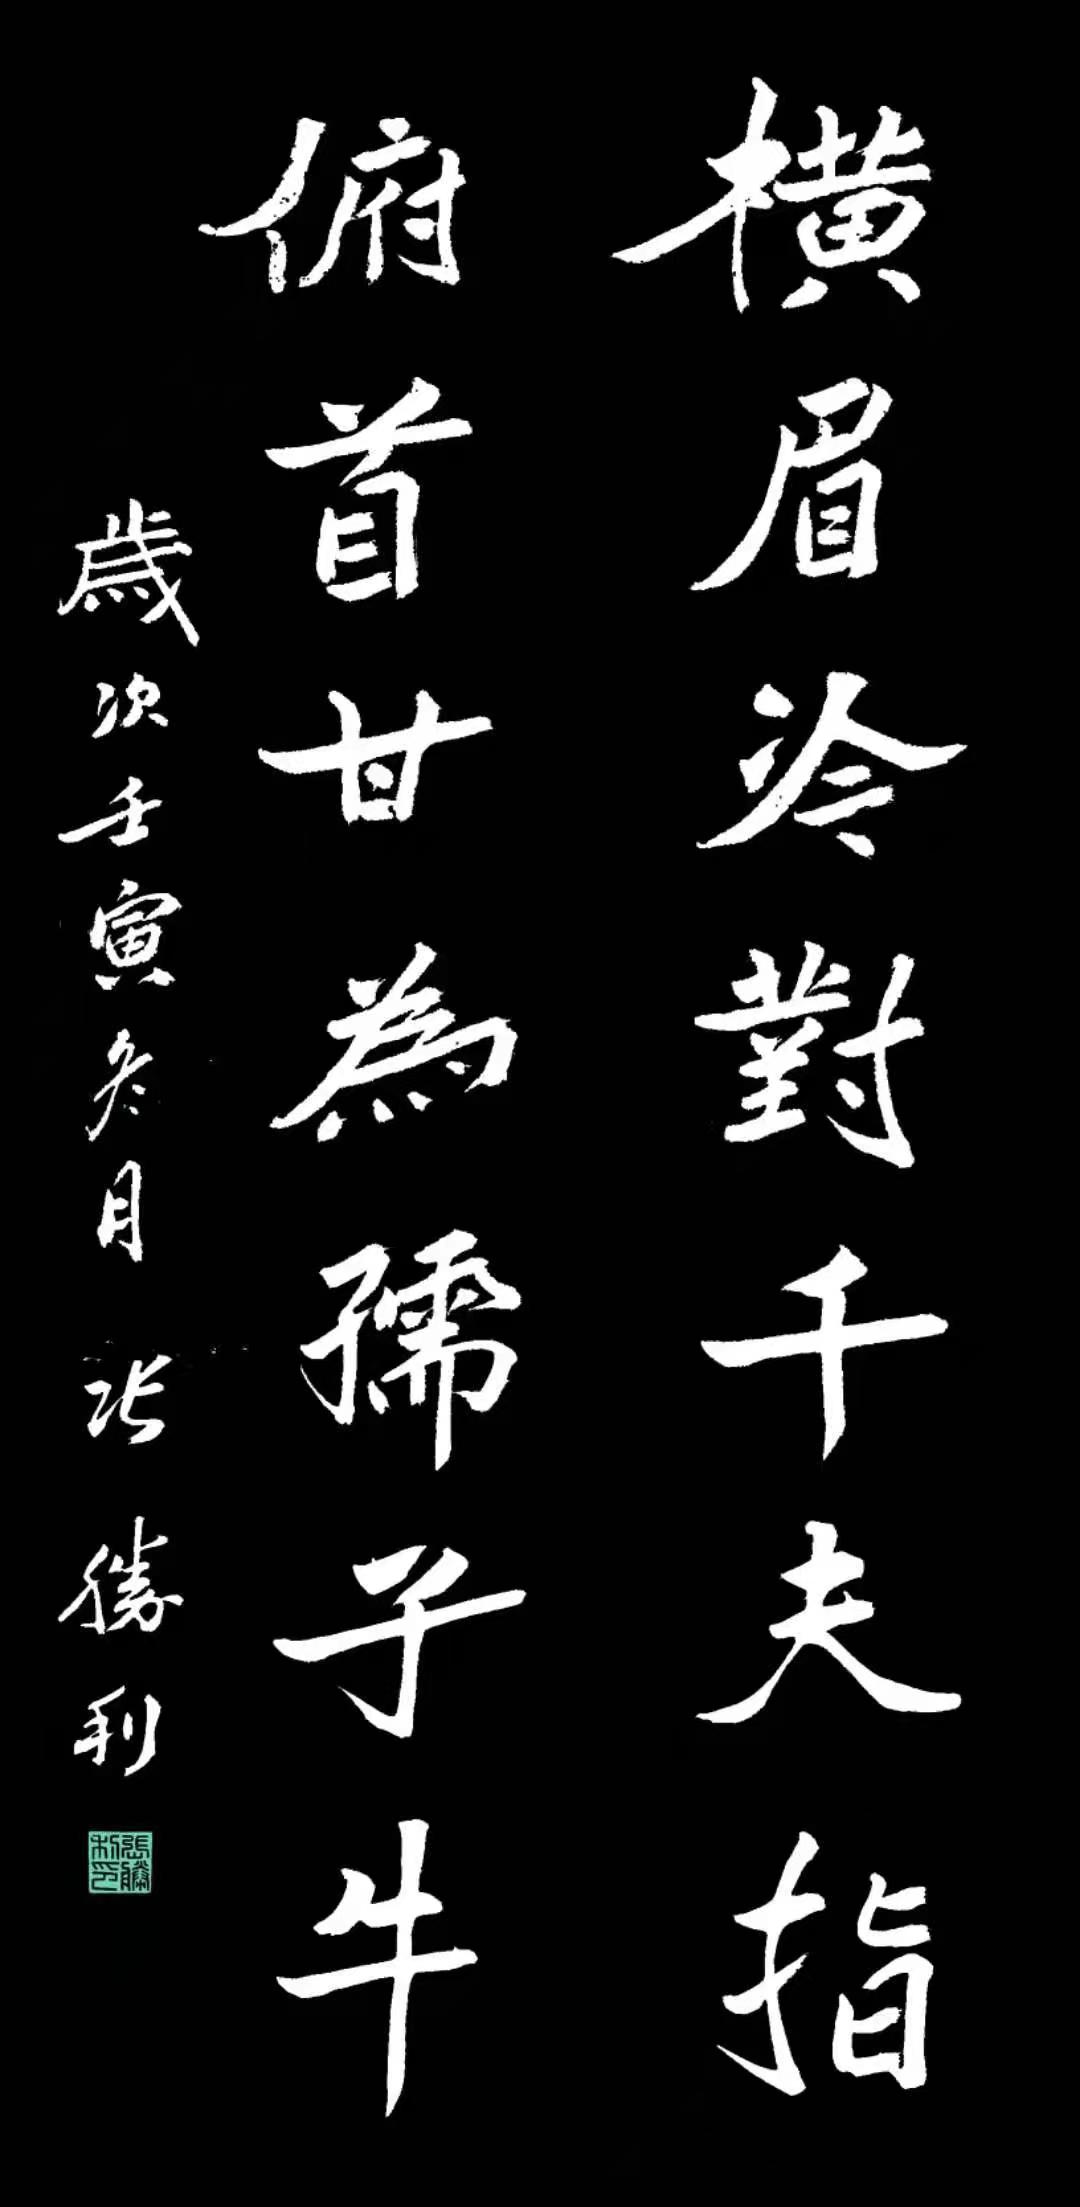 橫眉冷對千夫指
俯首甘為孺子牛
歲次壬寅冬月 张勝利
張勝利印